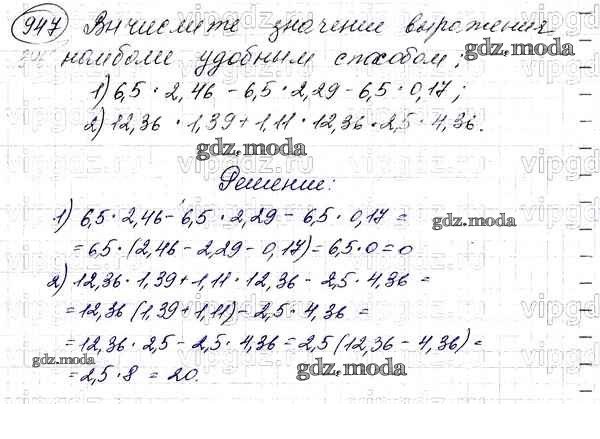 947 Вычислите значение выражения
наиболее удобным способом:
gdz.moda
1) 6,5 · 2,46 - 6,5 · 2,29 - 6,5 · 0,17;
2) 12,36 · 1,39 + 1,11 · 12,36 · 2,5 · 4,36.
gdz.moda
Решение:
1) 6,5 · 2,46 - 6,5 · 2,29 - 6,5 · 0,17 =
gdz.moda
= 6,5 · (2,46 - 2,29 - 0,17) = 6,5 · 0 = 0
2) 12,36 · 1,39 + 1,11 · 12,36 - 2,5 · 4,36 =
= 12,36 (1,39 + 1,11) - 2,5 · 4,36 =
= 12,36 · 2,5 - 2,5 · 4,36 = 2,5 (12,36 - 4,36) =
gdz.moda
= 2,5 · 8 = 20.
gdz.moda